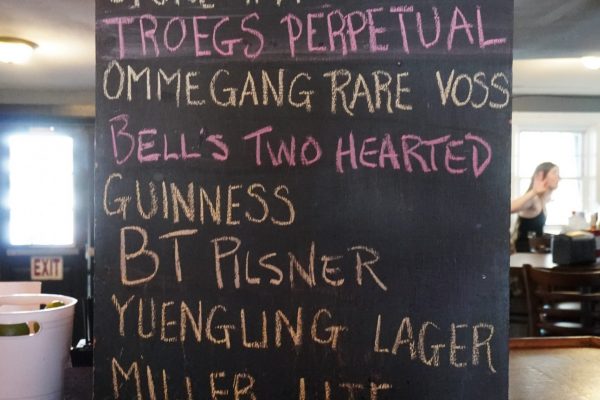 TROEGS PERPETUAL
OMMEGANG RARE VOSS
BELL'S TWO HEARTED
GUINNESS
BT PILSNER
YUENGLING LAGER
MILLER LITE
EXIT